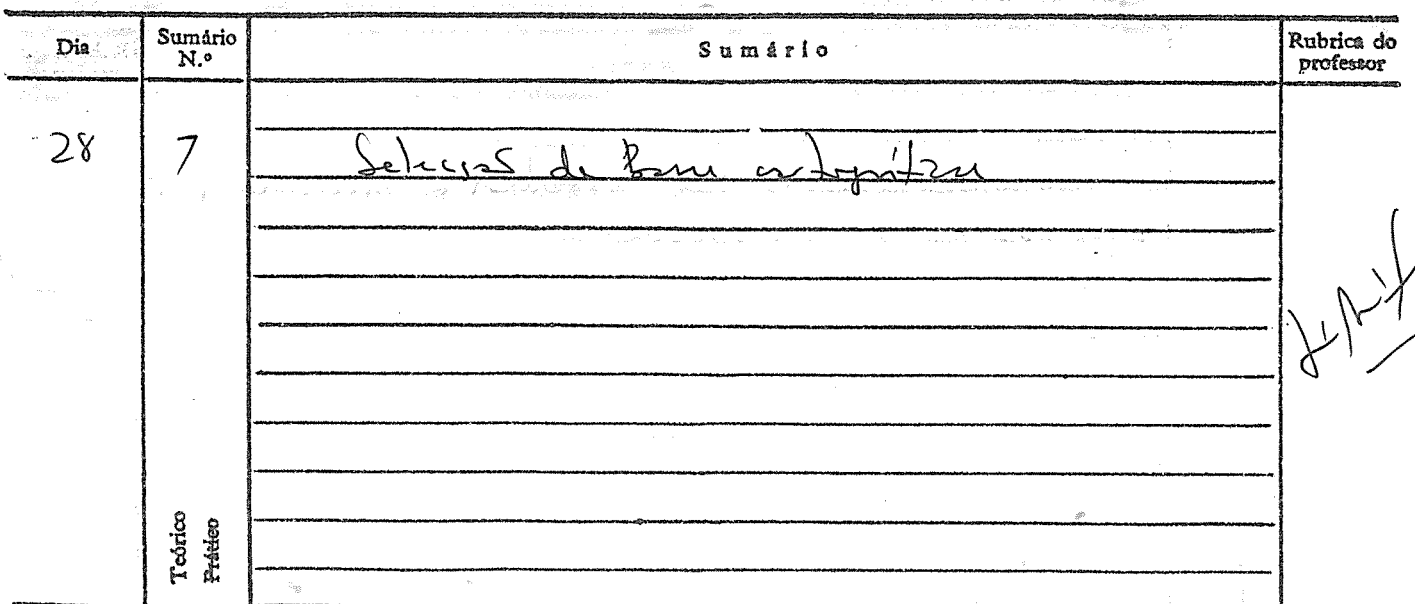 Dia
Sumário N.º
Sumário
Rubrica do professor
28
7
Selecção de Base
Teórico
Prático